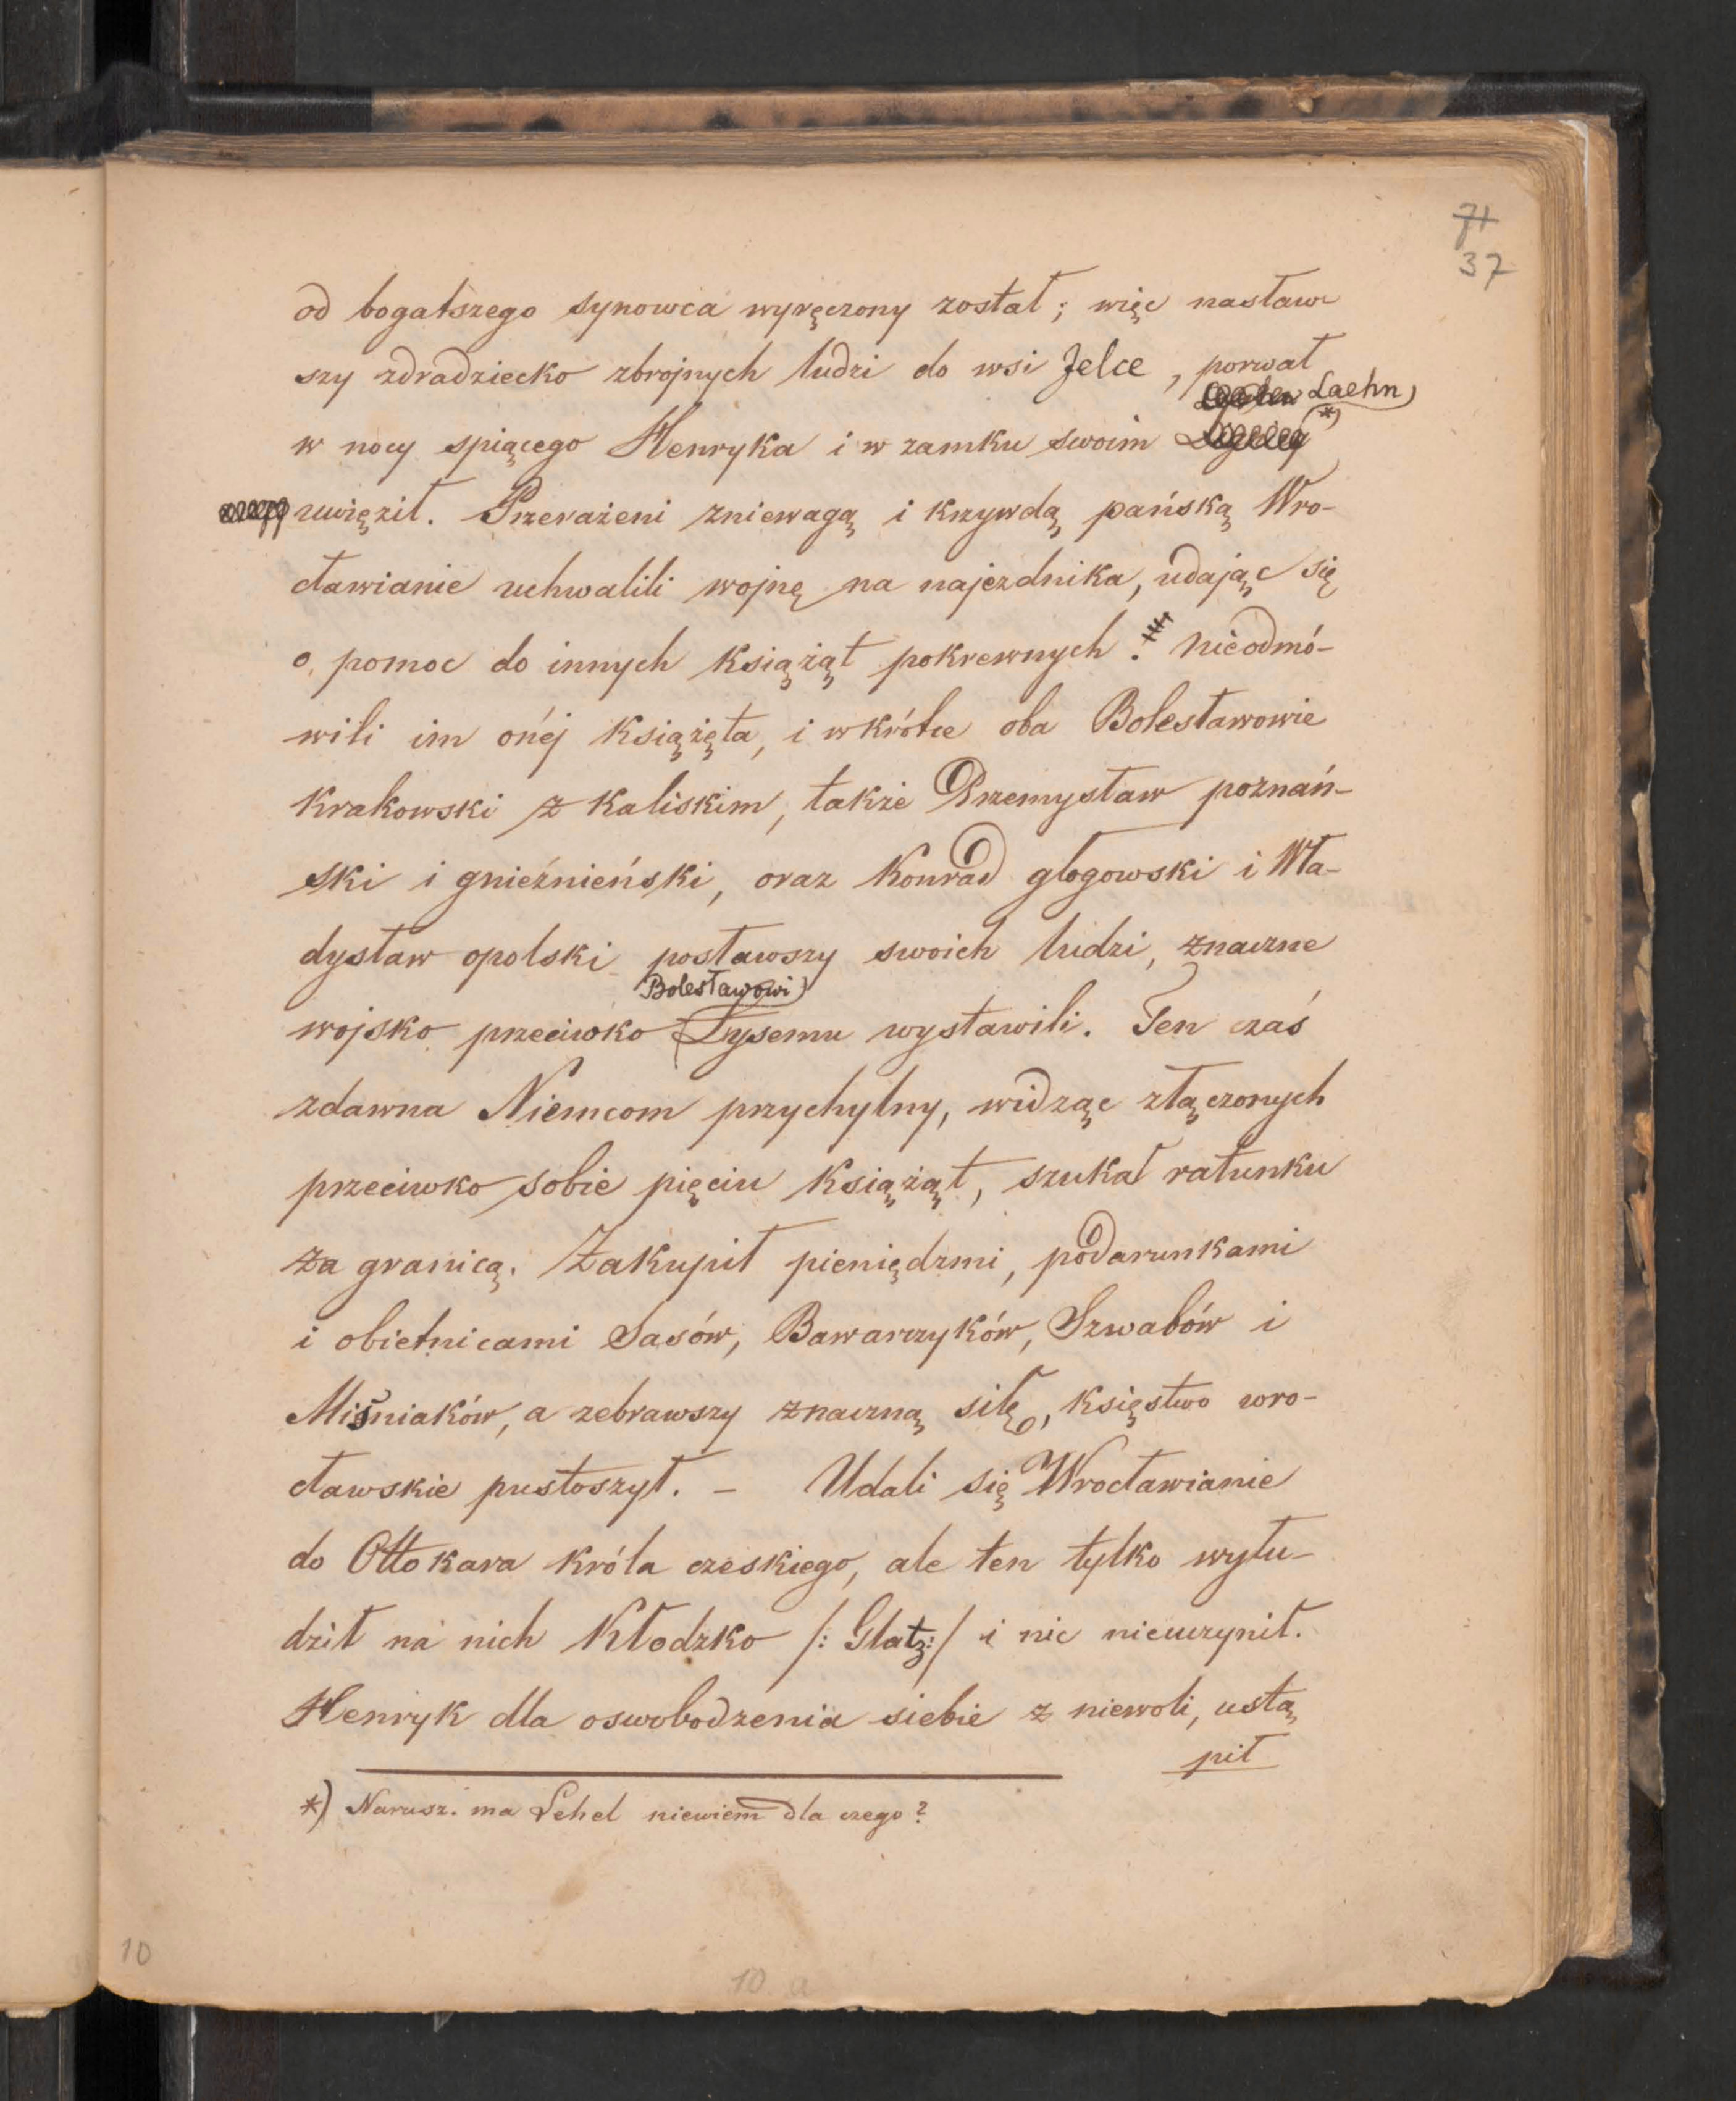 71
37
od bogatszego synowca wyręczony został; więc nasław
szy zdradziecko zbrojnych ludzi do wsi Jelce, porwał
Laehn
w nocy spiącego Henryka i w zamku swoim *)
uwięził. Przerażeni zniewagą i krzywdą pańską Wro-
cławianie uchwalili wojnę na najezdnika, udając się
o pomoc do innych książąt pokrewnych. Nieodmó-
wili im onéj książęta, i wkrótce oba Bolesławowie
krakowski z kaliskim, także Przemysław poznań-
ski i gnieźnieński, oraz Konrad głogowski i Wła-
dysław opolski posławszy swoich ludzi, znaczne
Bolesławowi
wojsko przeciwko Łysemu wystawili. Ten czaś
zdawna Niemcom przychylny, widząc złączonych
przeciwko sobie pięciu książąt, szukał ratunku
za granicą. Zakupił pieniędzmi, podarunkami
i obietnicami Sasów, Bawarczyków, Szwabów i
Miśniaków, a zebrawszy znaczną siłę, księstwo wro-
cławskie pustoszył. – Udali się Wrocławianie
do Ottokara króla czeskiego, ale ten tylko wyłu-
dził na nich Kłodzko /: Glatz :/ i nic nieuczynił.
Henryk dla oswobodzenia siebie z niewoli, ustą
pił
*) Narusz. ma Lehel niewiem dla czego?
10
10 a